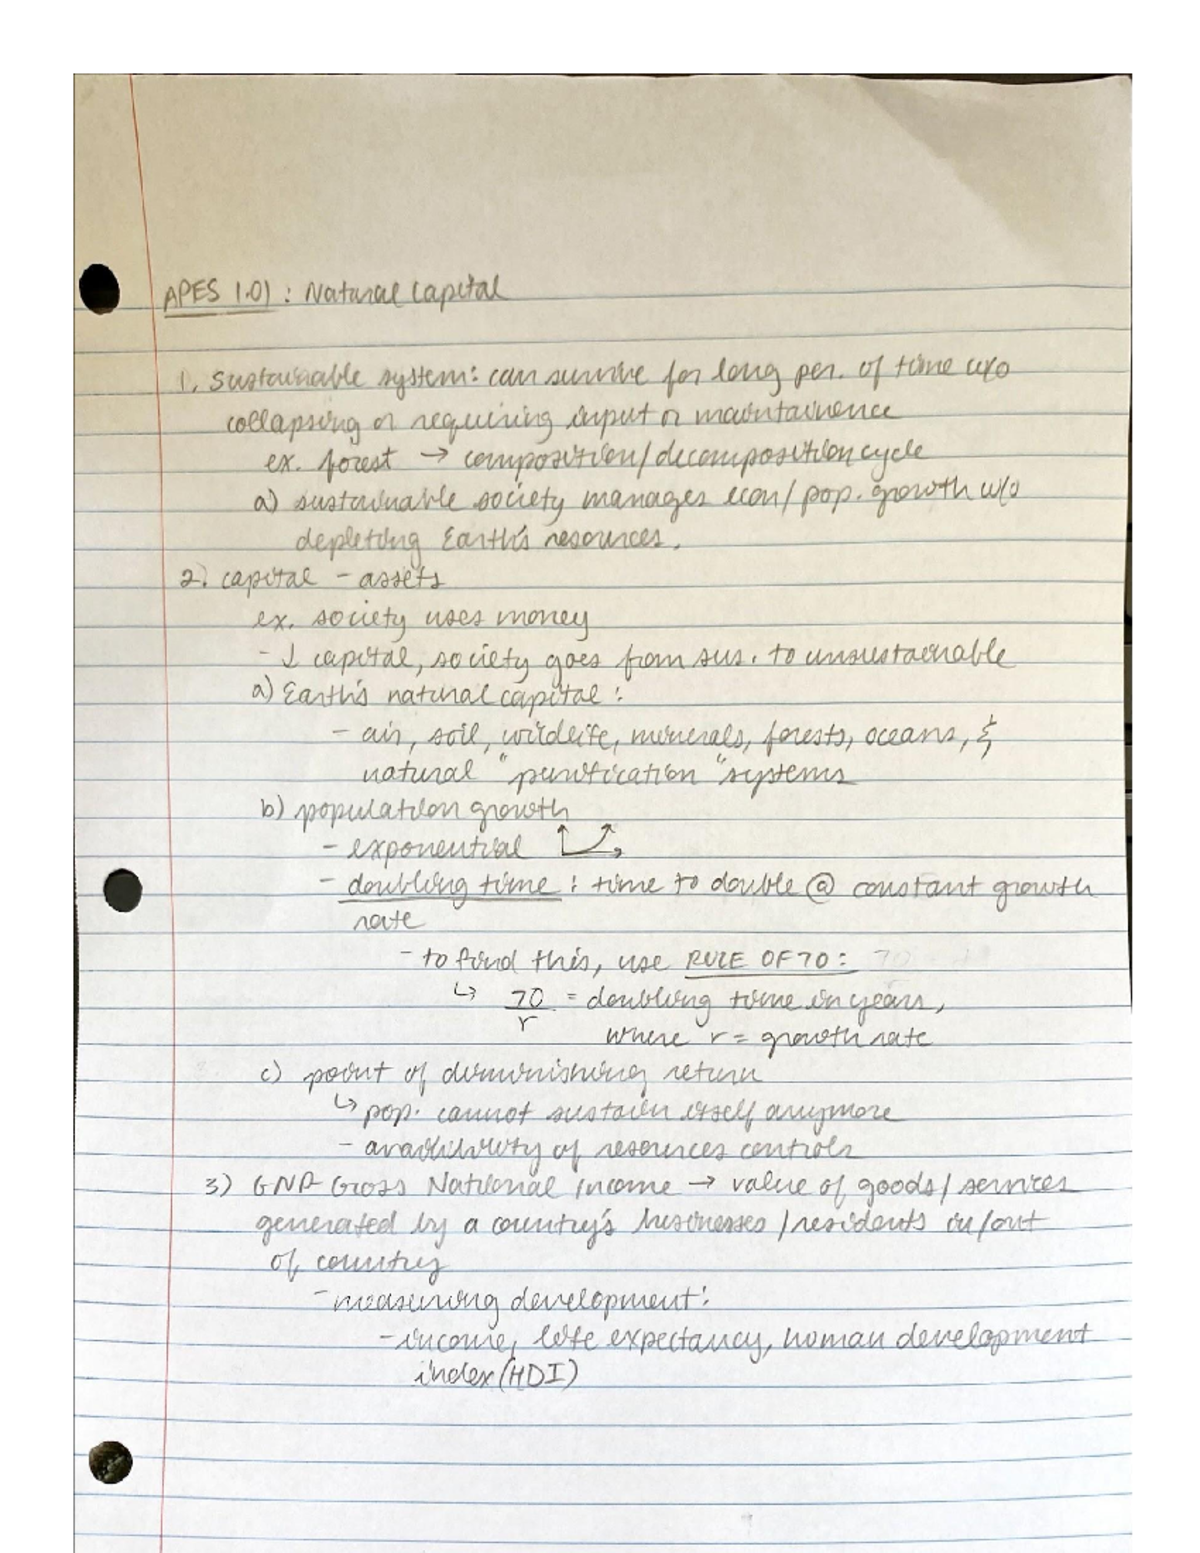 APES 1.01 : Natural Capital
1. Sustainable system: can survive for long per. of time w/o
collapsing or requiring input or maintainence
ex. forest → composition/decomposition cycle
a) sustainable society manages econ/pop. growth w/o
depleting Earth's resources.
2. capital - assets
ex. society uses money
- ↓ capital, society goes from sus. to unsustainable
a) Earth's natural capital :
- air, soil, wildlife, minerals, forests, oceans, &
natural "purification "systems
b) population growth
- exponential
- doubling time : time to double @ constant growth
rate
- to find this, use RULE OF 70 : 70
↳ 70/r = doubling time in years,
where r = growth rate
c) point of diminishing return
↳ pop. cannot sustain itself anymore
- availibility of resources controls
3) GNP Gross National Income → value of goods/services
generated by a country's businesses/residents in/out
of country
- measuring development:
- income, life expectancy, human development
index (HDI)